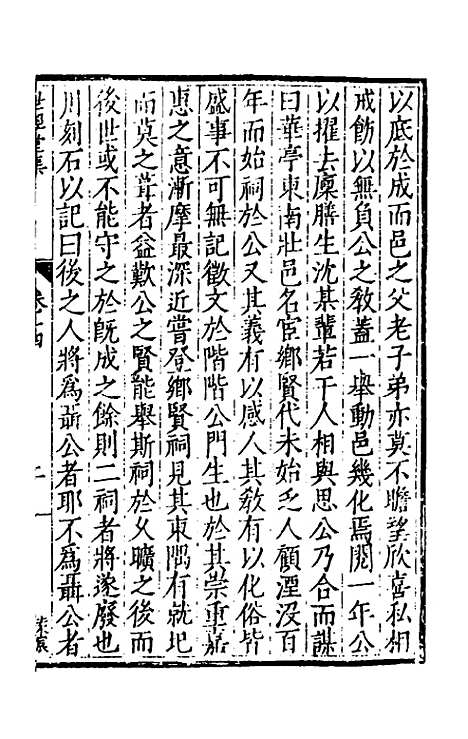 以底於成而邑之父老子弟亦莫不瞻望欣喜私相
戒飭以無負公之教蓋一舉動邑幾化焉閱一年公
以擢去廩膳生沈某輩若干人相與思公乃合而謀
曰華亭東南壯邑名宦鄉賢代未始乏人顧湮沒百
年而始祠於公又其義有以感人其教有以化俗皆
盛事不可無記徵文於階階公門生也於其崇重嘉
惠之意漸摩最深近嘗登鄉賢祠見其東隅有就圮
而莫之葺者益歎公之賢能舉斯祠於久曠之後而
後世或不能守之於既成之餘則二祠者將遂廢也
川刻石以記曰後之人將為聶公者耶不為聶公者
世經堂集
卷十四
二